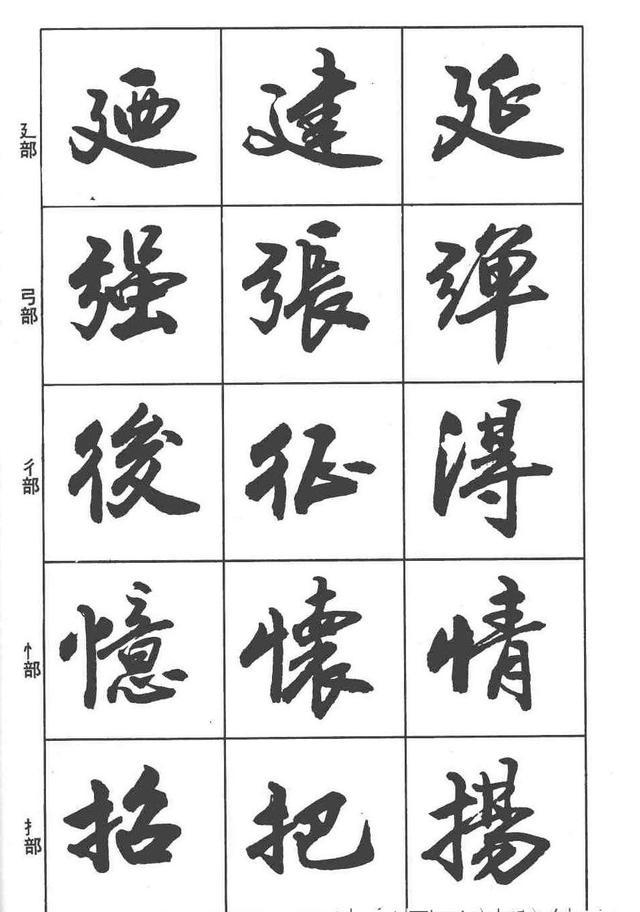 廴部 廼 建 延
弓部 强 張 弹
彳部 後 征 得
忄部 憶 懷 情
扌部 招 把 揚